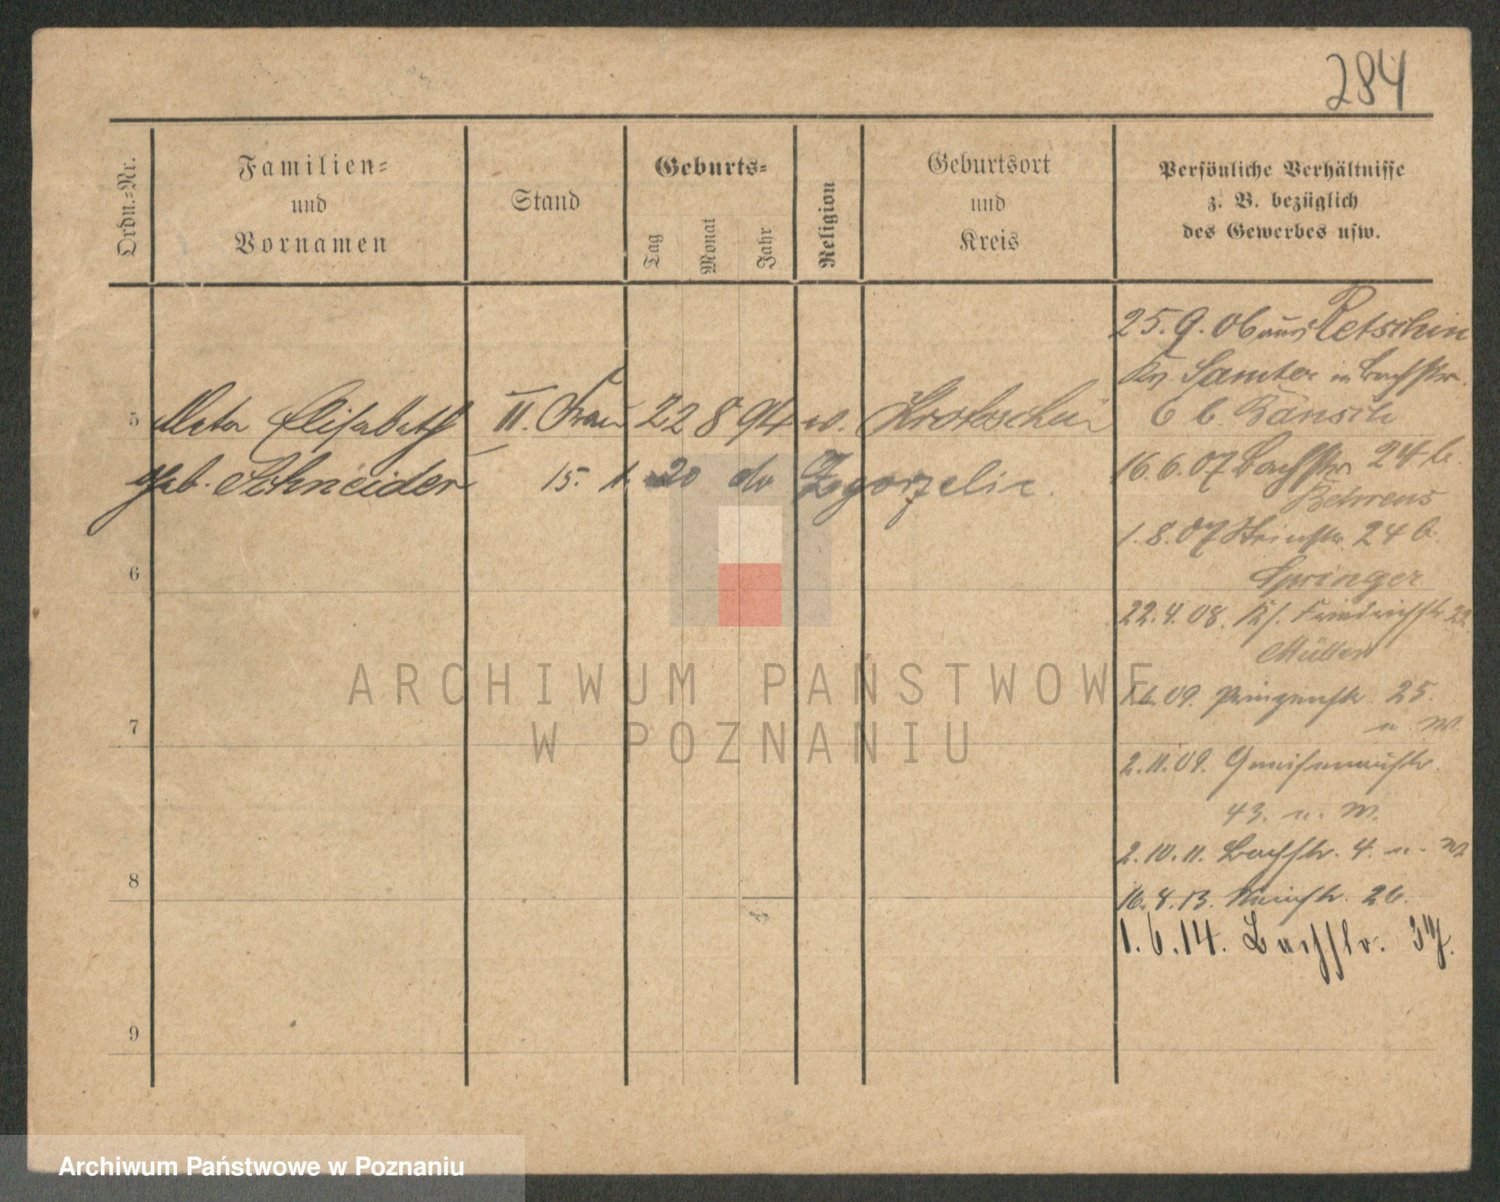 284
Ordn.-Nr.
Familien-
und
Vornamen
Stand
Geburts-
Tag
Monat
Jahr
Religion
Geburtsort
und
Kreis
Persönliche Verhältnisse
z. B. bezüglich
des Gewerbes usw.
5
Meta Elisabeth II. Frau 22 8 94 ev. Krotoschin
geb. Schneider 15. 1. 20 do Zgorzelic.
6
7
8
9
25. 9. 06 aus Retschin
Kr. Samter in Bachstr.
6 b. Bänsch
16. 6. 07 Bachstr. 24 b.
Behrens
1. 8. 07 24 b.
Springer
22. 4. 08. Friedrichstr. 22.
Müller
09. Prinzenstr. 25.
u. W.
2. 11. 09. Gneisenaustr.
43. u. W.
2. 10. 11. Bachstr. 4. u. W.
16. 4. 13. 26.
1. 6. 14. Bachstr. 37.
ARCHIWUM PAŃSTWOWE
W POZNANIU
Archiwum Państwowe w Poznaniu